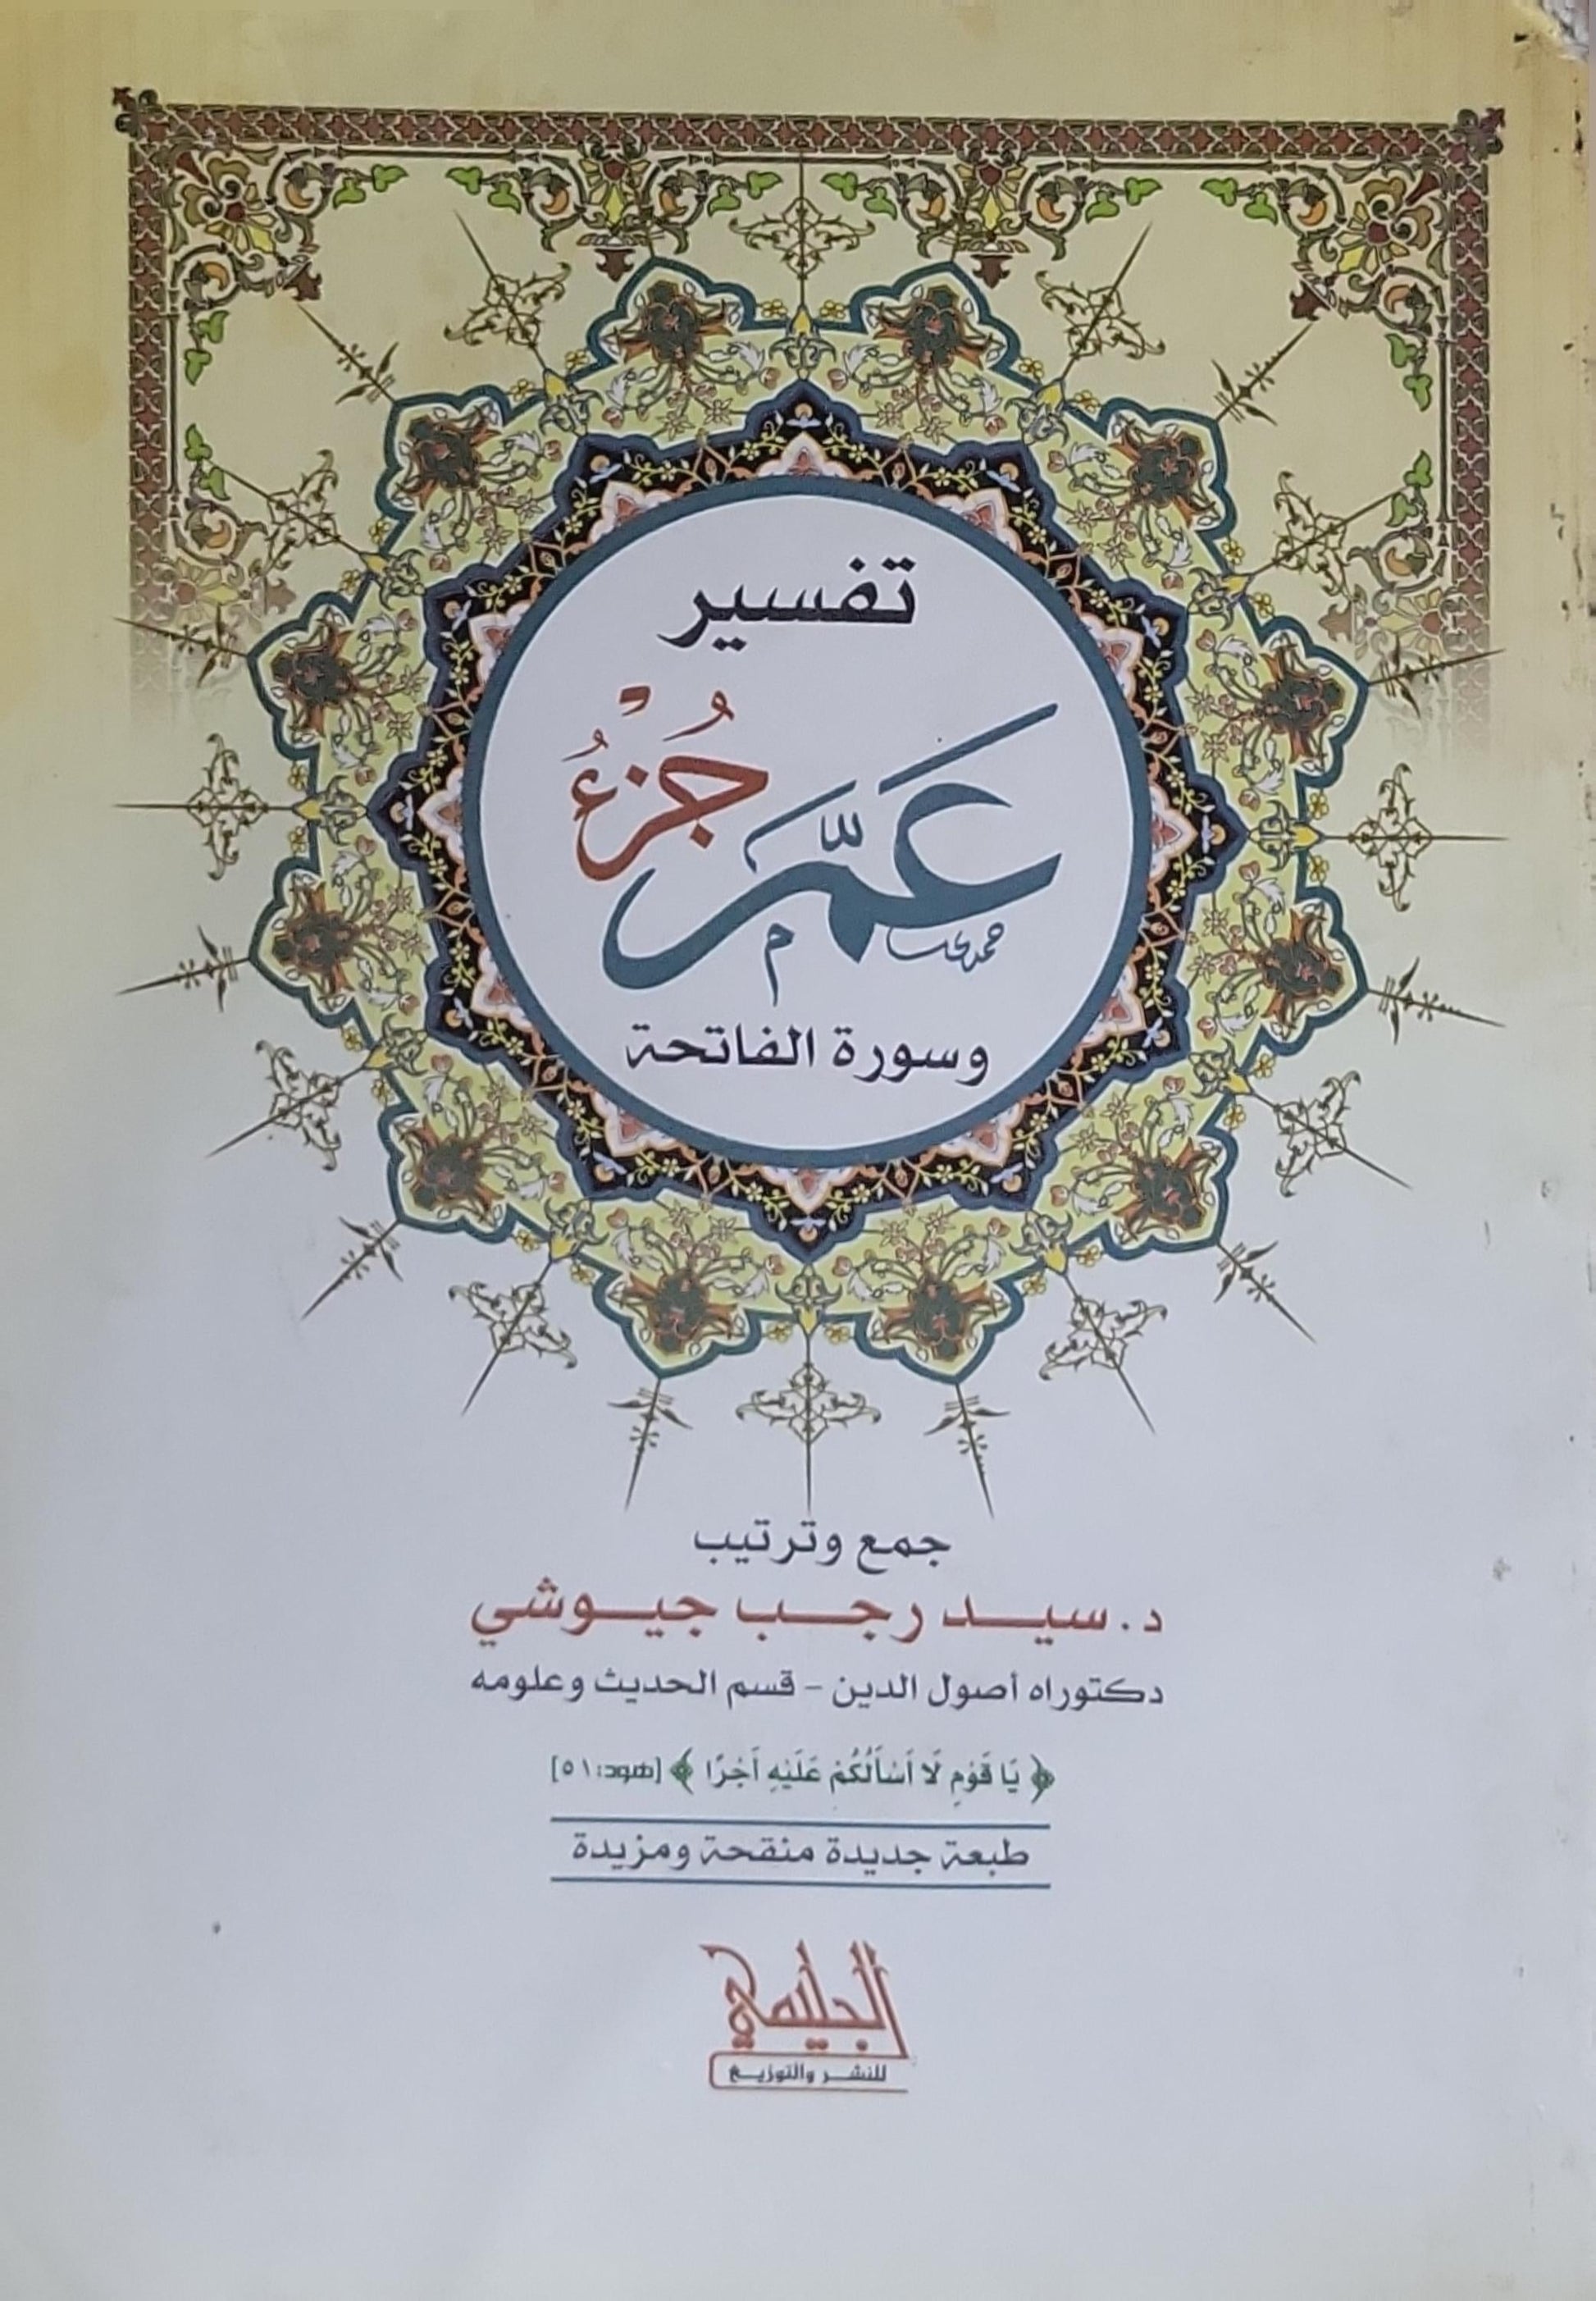 تفسير
جُزْءُ عَمَّ
وسورة الفاتحة
جمع وترتيب
د. سيد رجب جيوشي
دكتوراه أصول الدين - قسم الحديث وعلومه
﴿ يَا قَوْمِ لَا أَسْأَلُكُمْ عَلَيْهِ أَجْرًا ﴾ [هود: ٥١]
طبعة جديدة منقحة ومزيدة
للنشر والتوزيع